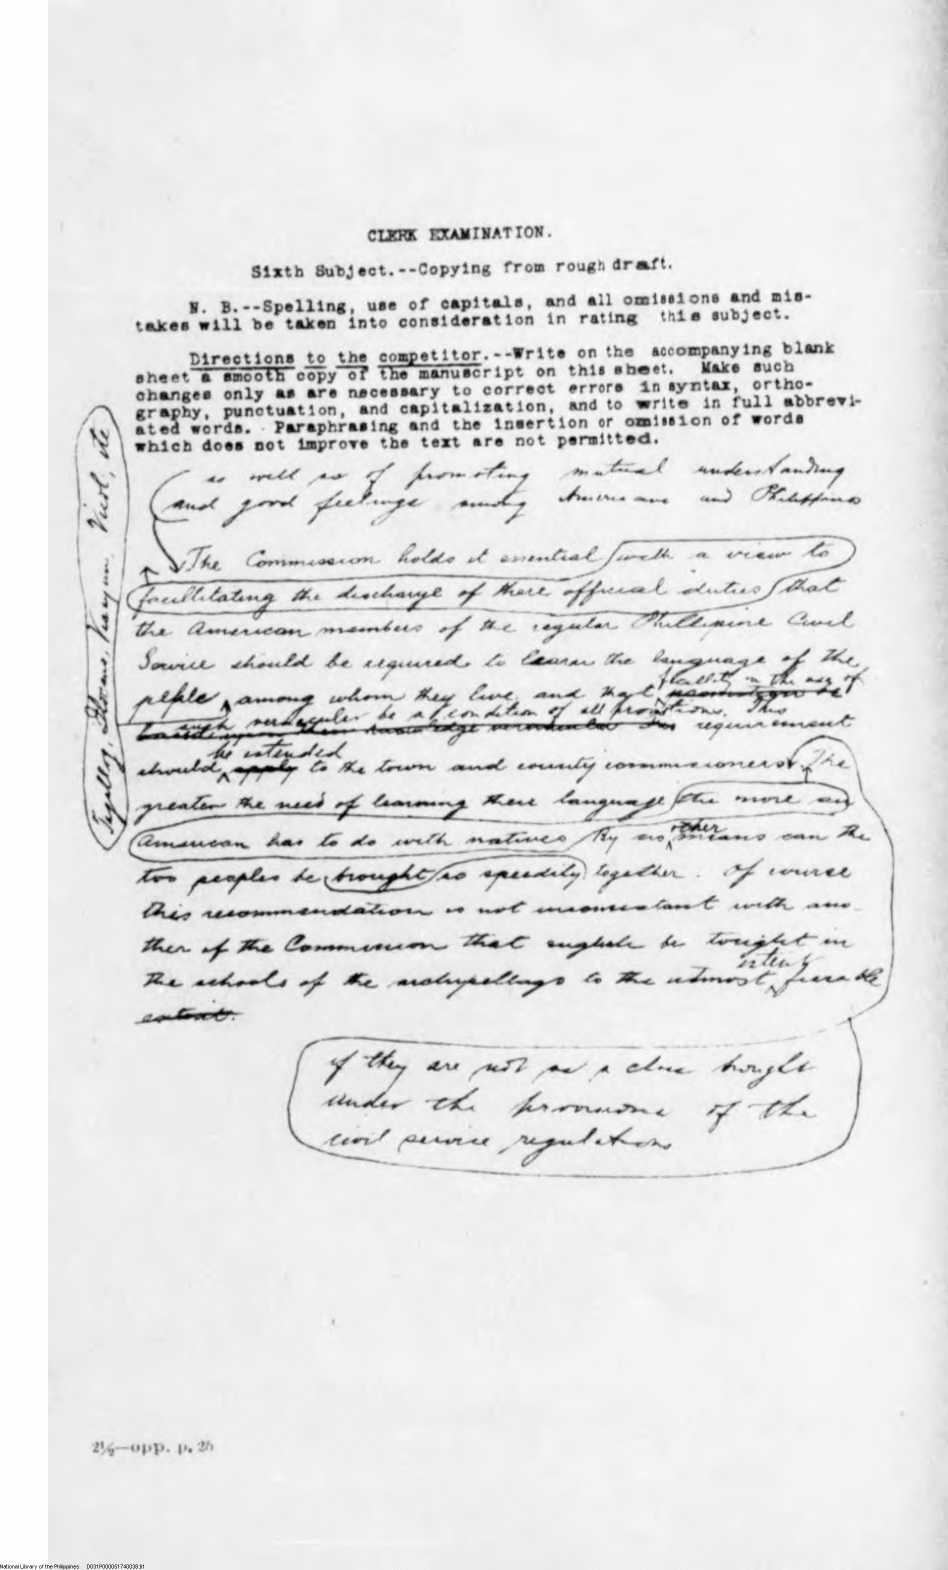 CLERK EXAMINATION.
Sixth Subject.--Copying from rough draft.
N. B.--Spelling, use of capitals, and all omissions and mis-
takes will be taken into consideration in rating this subject.
Directions to the competitor.--Write on the accompanying blank
sheet a smooth copy of the manuscript on this sheet. Make such
changes only as are necessary to correct errors in syntax, ortho-
graphy, punctuation, and capitalization, and to write in full abbrevi-
ated words. Paraphrasing and the insertion or omission of words
which does not improve the text are not permitted.
as well as of promoting mutual understanding
and good feelings among Americans and
The Commission holds it essential with a view to
facillitating the discharge of there official duties that
the American members of the regular Phillipine Civil
Service should be required to learn the language of the
facility in the use of
people among whom they live, and that
such vernacular be a condition of all promotions. This
knowledge requirement
be intended
should apply to the town and county commissioners. The
greater the need of learning there language the more an
American has to do with natives By no other means can the
too peoples be brought so speedily together. Of course
this recommendation is not inconsistant with ano-
ther of the Commission that english be tought in
the schools of the archipellago to the utmost extent
extent.
if they are not as a class brought
under the provisions of the
civil service regulations
Tagallog, Visayan, Vicol, etc
2½—opp. p. 26
National Library of the Philippines